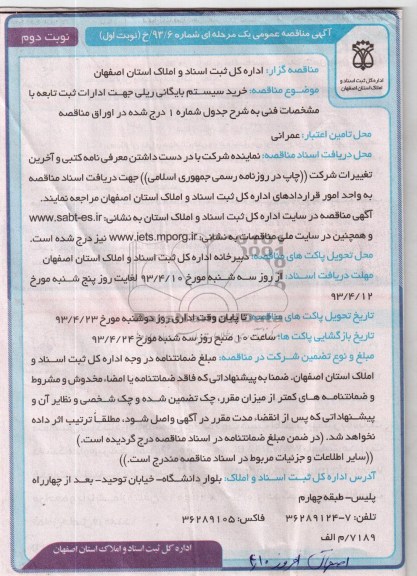 آگهی مناقصه عمومی یک مرحله ای شماره ۹۳/۶/خ (نوبت اول)
نوبت دوم
اداره کل ثبت اسناد و
املاک استان اصفهان
مناقصه گزار: اداره کل ثبت اسناد و املاک استان اصفهان
موضوع مناقصه: خرید سیستم بایگانی ریلی جهت ادارات ثبت تابعه با
مشخصات فنی به شرح جدول شماره ۱ درج شده در اوراق مناقصه
محل تامین اعتبار: عمرانی
محل دریافت اسناد مناقصه: نماینده شرکت با در دست داشتن معرفی نامه کتبی و آخرین
تغییرات شرکت ((چاپ در روزنامه رسمی جمهوری اسلامی)) جهت دریافت اسناد مناقصه
به واحد امور قراردادهای اداره کل ثبت اسناد و املاک استان اصفهان مراجعه نمایند.
آگهی مناقصه در سایت اداره کل ثبت اسناد و املاک استان به نشانی: www.sabt-es.ir
و همچنین در سایت ملی مناقصات به نشانی: www.iets.mporg.ir نیز درج شده است.
محل تحویل پاکت های مناقصه: دبیرخانه اداره کل ثبت اسناد و املاک استان اصفهان
مهلت دریافت اسناد: از روز سه شنبه مورخ ۹۳/۴/۱۰ لغایت روز پنج شنبه مورخ
۹۳/۴/۱۲
تاریخ تحویل پاکت های مناقصه: تا پایان وقت اداری روز دوشنبه مورخ ۹۳/۴/۲۳
تاریخ بازگشایی پاکت ها: ساعت ۱۰ صبح روز سه شنبه مورخ ۹۳/۴/۲۴
مبلغ و نوع تضمین شرکت در مناقصه: مبلغ ضمانتنامه در وجه اداره کل ثبت اسناد و
املاک استان اصفهان. ضمنا به پیشنهاداتی که فاقد ضمانتنامه یا امضا، مخدوش و مشروط
و ضمانتنامه های کمتر از میزان مقرر، چک تضمین شده و چک شخصی و نظایر آن و
پیشنهاداتی که پس از انقضا، مدت مقرر در آگهی واصل شود، مطلقاً ترتیب اثر داده
نخواهد شد. (در ضمن مبلغ ضمانتنامه در اسناد مناقصه درج گردیده است.)
((سایر اطلاعات و جزئیات مربوط در اسناد مناقصه مندرج است.))
آدرس اداره کل ثبت اسناد و املاک: بلوار دانشگاه- خیابان توحید- بعد از چهارراه
پلیس- طبقه چهارم
تلفن: ۷-۳۶۲۸۹۱۲۴ فاکس: ۳۶۲۸۹۱۰۵
۷۱۸۹/م الف
اداره کل ثبت اسناد و املاک استان اصفهان